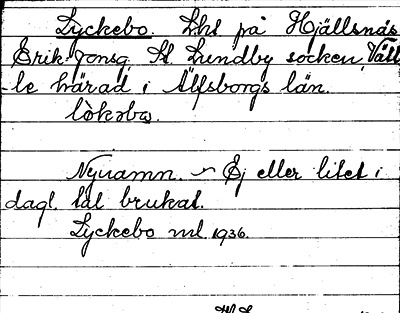 Lyckebo. Lht på Hjällsnäs
Erik-Jonsg. St. Lundby socken, Vätt
-le härad i Älfsborgs län.
lỳkəbω.
Nynamn. ~ Ej eller litet i
dagl. tal brukat.
Lyckebo ml 1936.